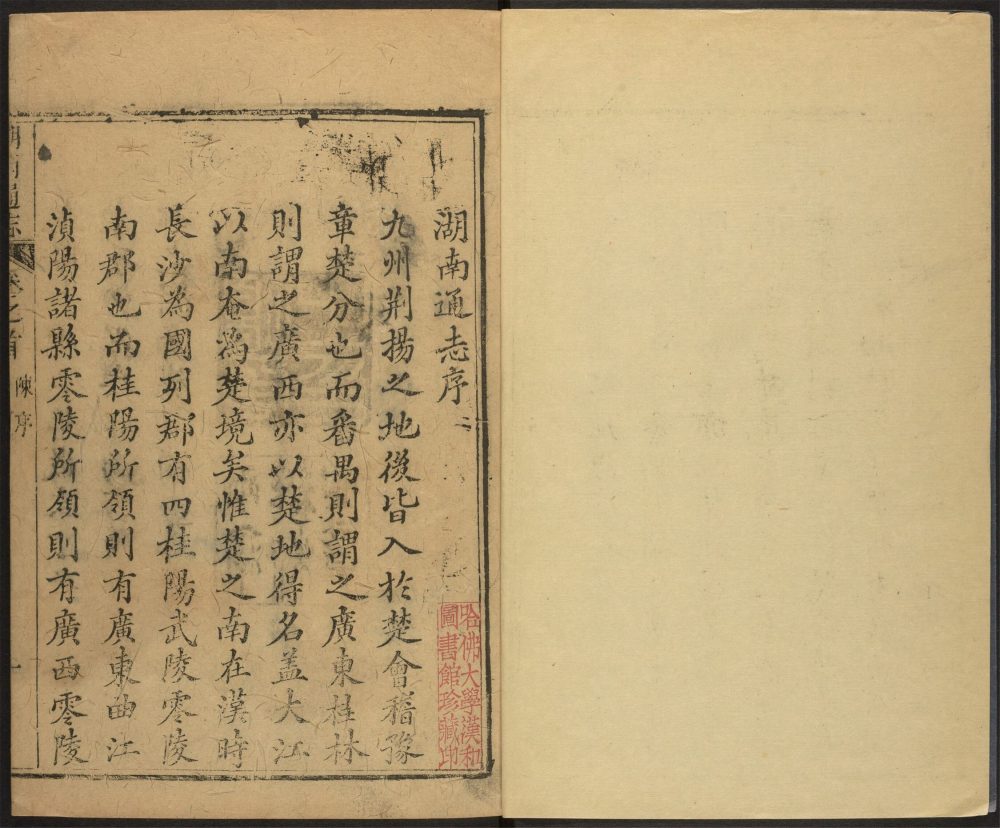 湖南通志序二
九州荆揚之地後皆入於楚會稽豫
章楚分也而番禺則謂之廣東桂林
則謂之廣西亦以楚地得名盖大江
以南奄為楚境矣惟楚之南在漢時
長沙為國列郡有四桂陽武陵零陵
南郡也而桂陽所領則有廣東曲江
湞陽諸縣零陵所領則有廣西零陵
通志
卷之首
陳序
一
哈佛大學漢和
圖書館珍藏印